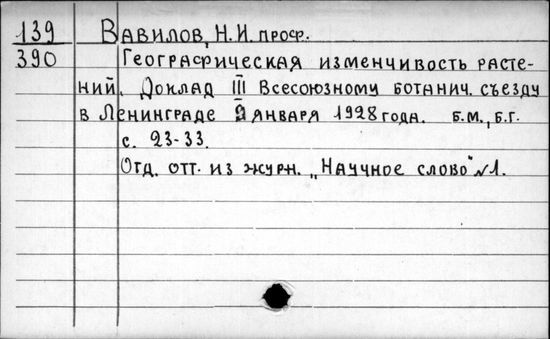 139 Вавилов, Н.И. проф.
390 Географическая изменчивость расте-
ний. Доклад III Всесоюзному ботанич. съезду
в Ленинграде января 1928 года. б.м., б.г.
с. 23-33.
Отд. отт. из журн. „Научное слово" №1.